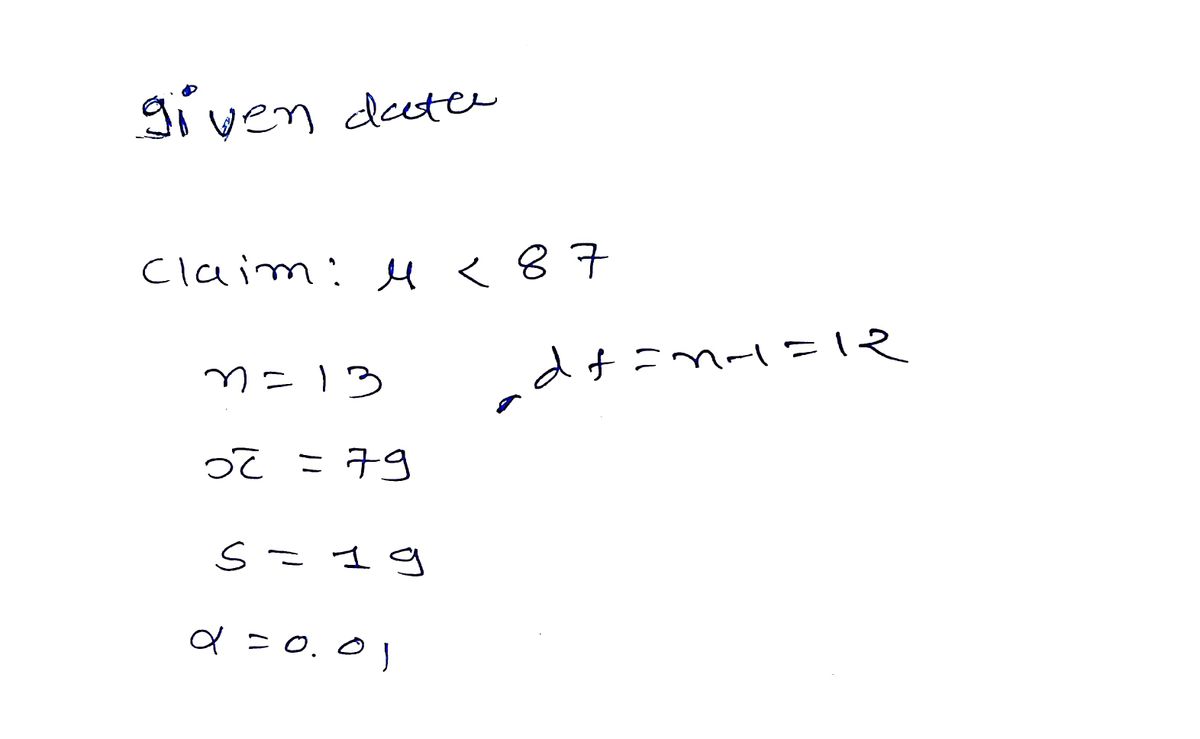 given data
Claim: μ < 87
n = 13 , df = n-1 = 12
x̄ = 79
s = 19
α = 0.01